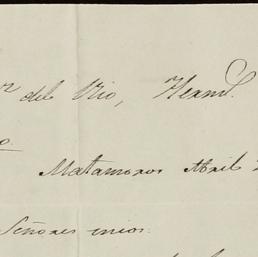 del Rio, Herm.
Matamoros Abril
Señores mios: